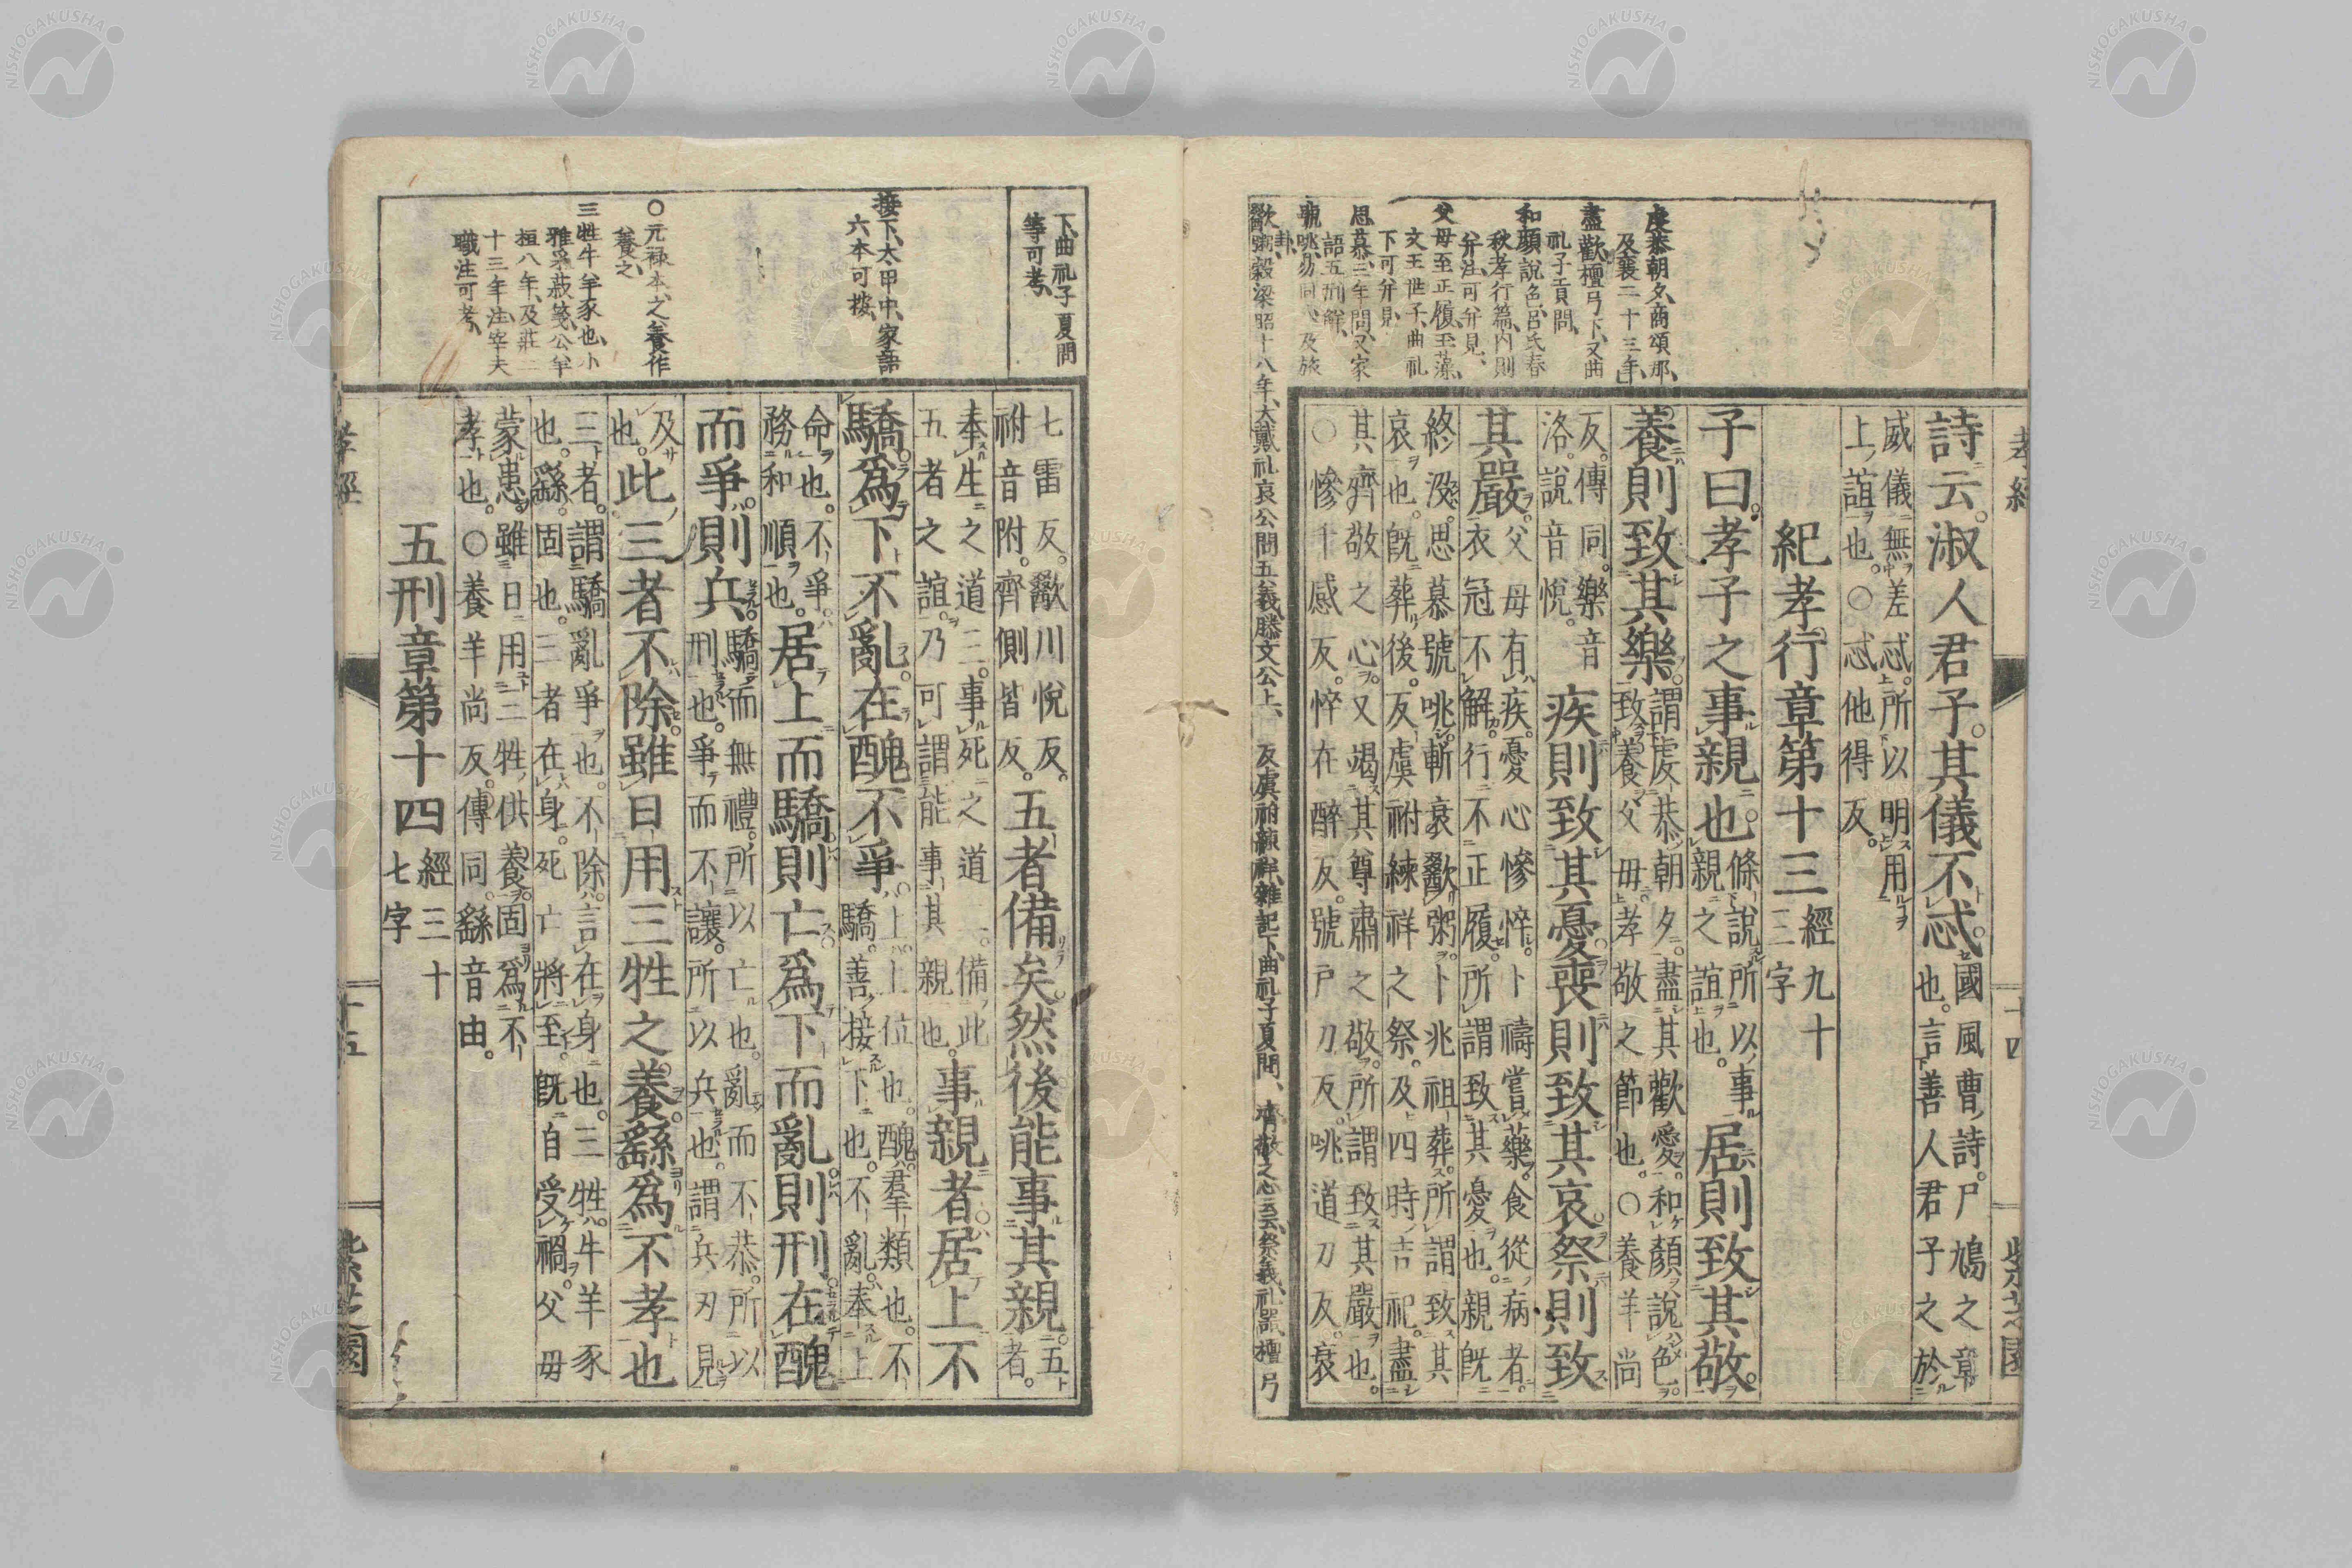 虔恭朝夕、商頌那、
及襄二十三年、
盡歡、檀弓下、又曲
礼子貢問、
和顔説色、呂氏春
秋孝行篇、内則
弁注可弁見、
父母至正履、玉藻、
文王世子、曲礼
下可弁見、
思慕、三年問、又家
語五刑解、
號咷、易同人、及旅
卦、
歠粥、穀梁昭十八年、大戴礼哀公問五義、滕文公上、
反虞祔練祥、雜記下、曲礼子夏問、
齊敬之心云云、祭義、礼器、檀弓
孝經
十四
紫芝園
詩云。淑人君子。其儀不忒。
國風曹詩。尸鳩之章
也。言善人君子之於
威儀無差忒。所以明用
上誼也。○忒他得反。
紀孝行章第十三
經九十
三字
子曰。孝子之事親也。
條説所以事
親之誼也。
居則致其敬。
養則致其樂。
謂虔恭朝夕。盡其歡愛。和顔説色。
致養父母孝敬之節也。○養羊尚
反。傳同。樂音
洛。説音悅。
疾則致其憂。喪則致其哀。祭則致
其嚴。
父母有疾。憂心慘悴。卜禱嘗藥。食從病者。
衣冠不解。行不正履。所謂致其憂也。親既
終没。思慕號咷。斬衰歠粥。卜兆祖葬。所謂致其
哀也。既葬後。反虞祔練祥之祭。及四時吉祀。盡
其齊敬之心。又竭其尊肅之敬。所謂致其嚴也。
○慘千感反。悴在醉反。號戸刀反。咷道刀反。衰
下、曲礼子夏問
等可考、
接下、太甲中、家語
六本可按、
○元禄本、之養作
養之、
三牲牛羊豕也、小
雅采菽箋、公羊
桓八年、及莊二
十三年注、宰夫
職注可考、
七雷反。歠川悅反。
祔音附。齊側皆反。
五者備矣。然後能事其親。
五者。
奉生之道三。事死之道二。備此
五者之誼。乃可謂能事其親也。
事親者。居上不
驕。爲下不亂。在醜不爭。
上上位也。醜羣類也。不
驕。善接下也。不亂。奉上
命也。不爭。
務和順也。
居上而驕。則亡。爲下而亂。則刑。在醜
而爭。則兵。
驕而無禮。所以亡也。亂而不恭。所以
刑也。爭而不讓。所以兵也。謂兵刃見
及
也。
此三者不除。雖日用三牲之養。繇爲不孝也
三者。謂驕亂爭也。不除。言在身也。三牲。牛羊豕
也。繇。固也。三者在身。死亡將至。既自受禍。父母
蒙患。雖日用三牲供養。固爲不
孝也。○養羊尚反。傳同。繇音由。
五刑章第十四
經三十
七字
孝經
十五
紫芝園